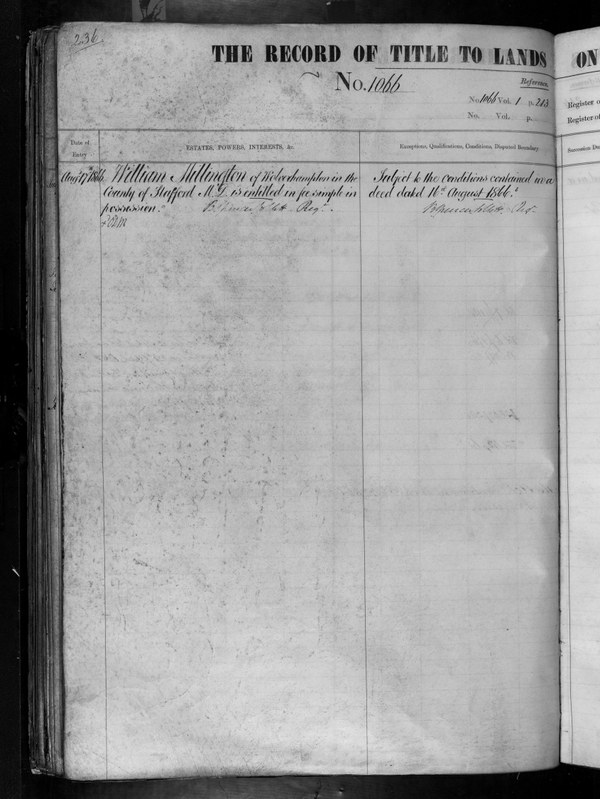 236
THE RECORD OF TITLE TO LANDS
ON
No. 1066
Reference.
No. 1066 Vol. 1 p. 213
No. Vol. p.
Register o
Register of
Date of
Entry
ESTATES, POWERS, INTERESTS, &c.
Exceptions, Qualifications, Conditions, Disputed Boundary
Succession Du
Augt 17th 1866
William Millington of Wolverhampton in the
County of Stafford M.D. is entitled in fee simple in
possession.
Regr.
Subject to the conditions contained in a
deed dated 14th August 1866.
Regr.